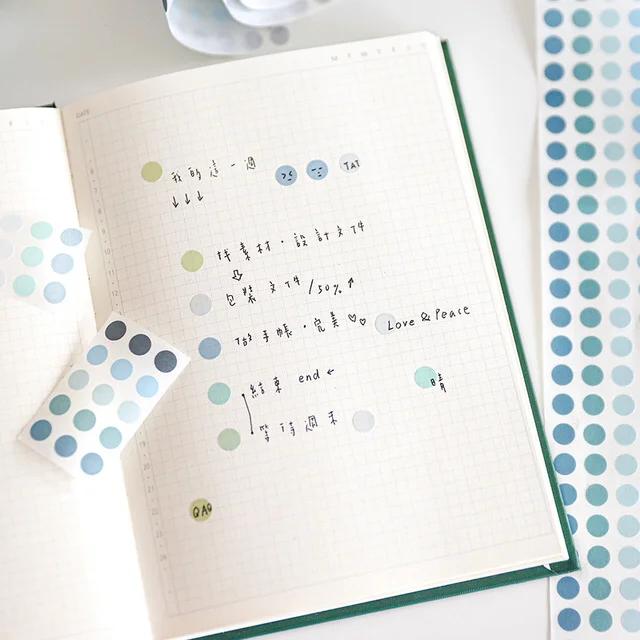 DATE
M T W T F S S
我的這一週 >< TAT
↓↓↓
找素材・設計文件
⇩
包裝文件/50%↑
做手帳・完美♡♡ Love & Peace
結束 end ←
晴
等待週末
QAQ